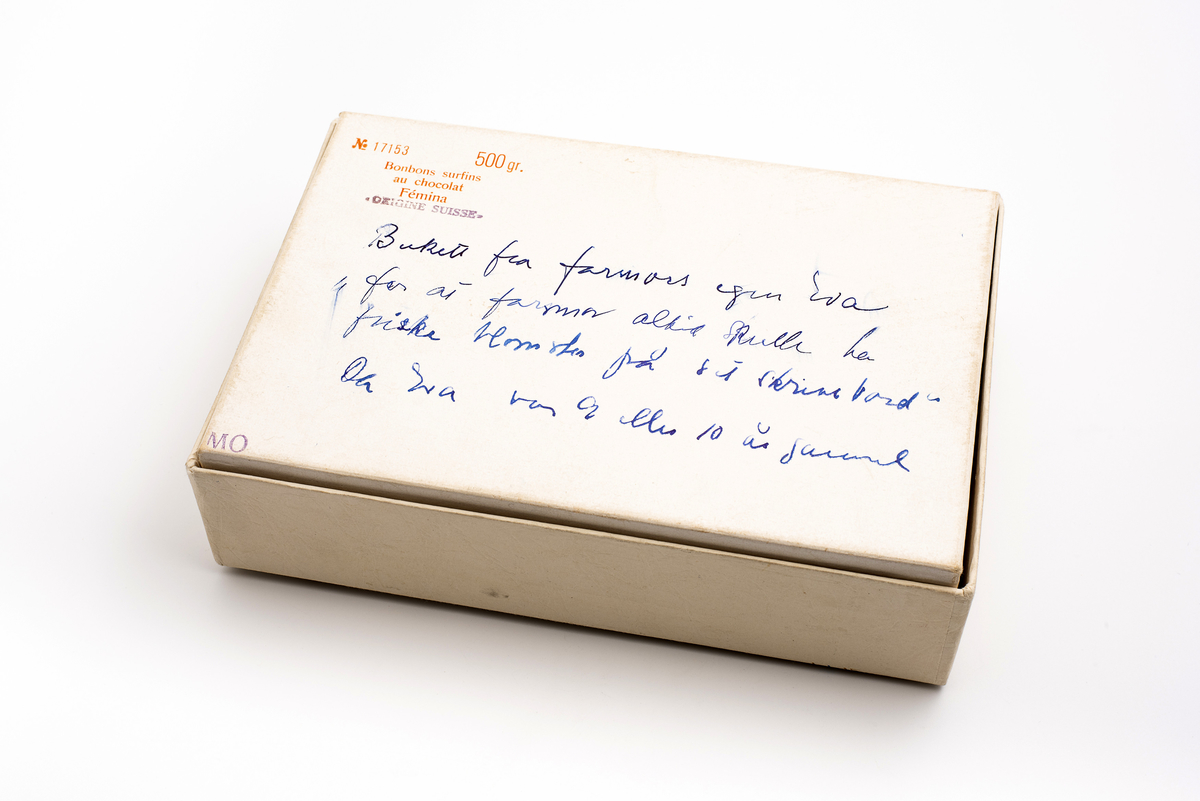 № 17153
500 gr.
Bonbons surfins
au chocolat
Fémina
"ORIGINE SUISSE"
Bukett fra farmors egen Eva
"for at farmor altid skulle ha
friske blomster på sit skrivebord"
Da Eva var 9 eller 10 år gammel
MO